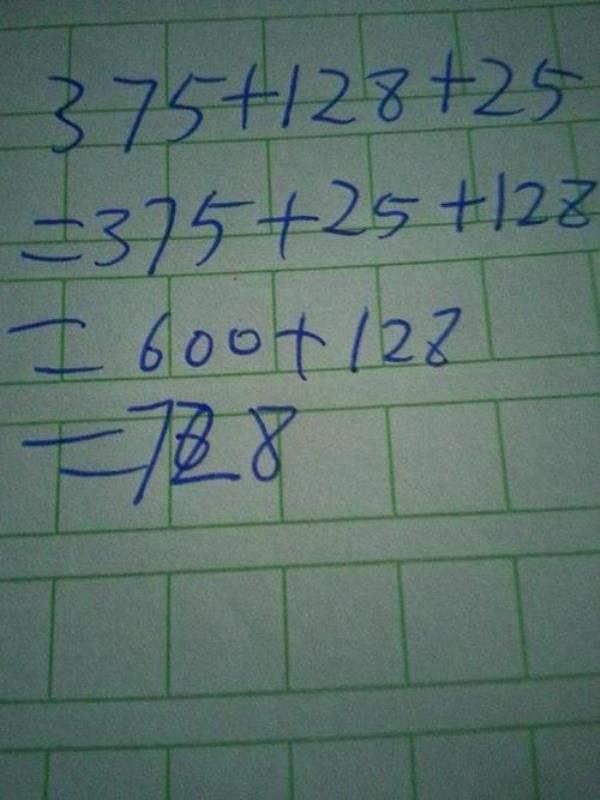 375+128+25
=375+25+128
=600+128
=728